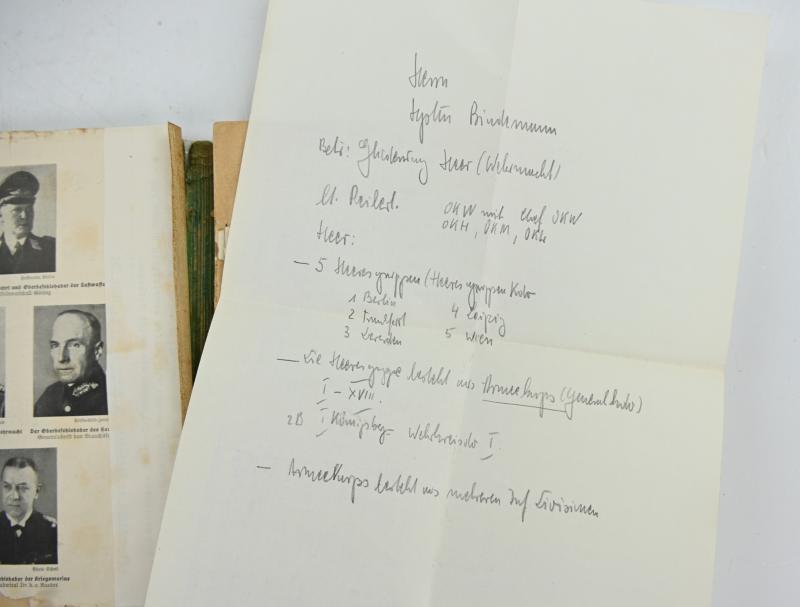 Hoffmann, Berlin
hrt und Oberbefehlshaber der Luftwaffe
feldmarschall Göring
ehrmacht
Der Oberbefehlshaber des
Generaloberst von Brauchitsch
lshaber der Kriegsmarine
dmiral Dr. h. c. Raeder
Herrn
Bindemann
Betr: Gliederung Heer (Wehrmacht)
lt. Reibert.
OKW mit Chef OKW
OKH, OKM, OKL
Heer:
— 5 Heeresgruppen (Heeresgruppen Kdo
1 Berlin
2 Frankfurt
3 Dresden
4 Leipzig
5 Wien
— Die Heeresgruppe besteht aus Armeekorps (Generalkdo)
I – XVIII.
zB I Königsberg – Wehrkreiskdo I.
— Armeekorps besteht aus mehreren Inf Divisionen